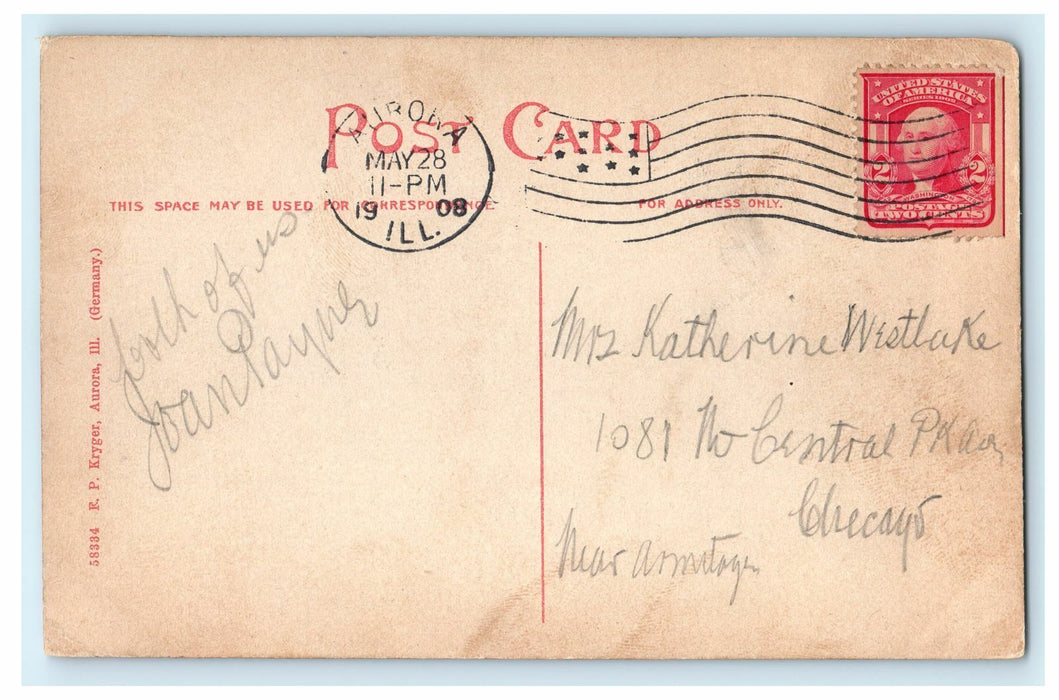 POST CARD
THIS SPACE MAY BE USED FOR CORRESPONDENCE.
FOR ADDRESS ONLY.
AURORA
MAY 28
11-PM
1908
ILL.
UNITED STATES
OF AMERICA
SERIES 1902
2 2
WASHINGTON
POSTAGE
TWO CENTS
58334 E. P. Kryger, Aurora, Ill. (Germany.)
both of us
Joan Payne
Mrs Katherine Westlake
1081 No Central Pk Av
Chicago
Near Armitage